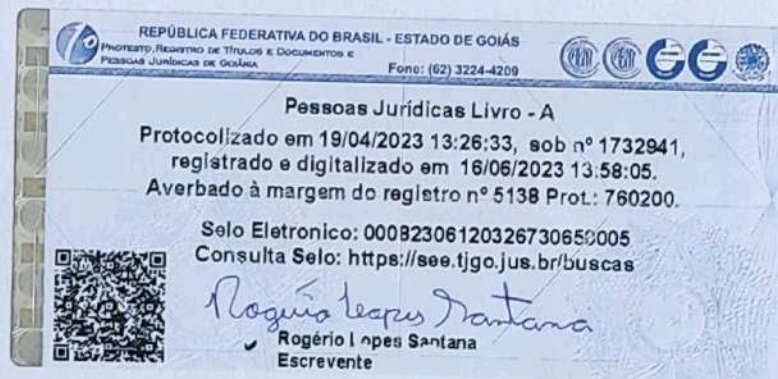 REPÚBLICA FEDERATIVA DO BRASIL - ESTADO DE GOIÁS
PROTESTO, REGISTRO DE TÍTULOS E DOCUMENTOS E
PESSOAS JURÍDICAS DE GOIÂNIA
Fone: (62) 3224-4209
Pessoas Jurídicas Livro - A
Protocolizado em 19/04/2023 13:26:33, sob nº 1732941,
registrado e digitalizado em 16/06/2023 13:58:05.
Averbado à margem do registro nº 5138 Prot.: 760200.
Selo Eletronico: 00082306120326730650005
Consulta Selo: https://see.tjgo.jus.br/buscas
Rogério Lopes Santana
Rogério Lopes Santana
Escrevente